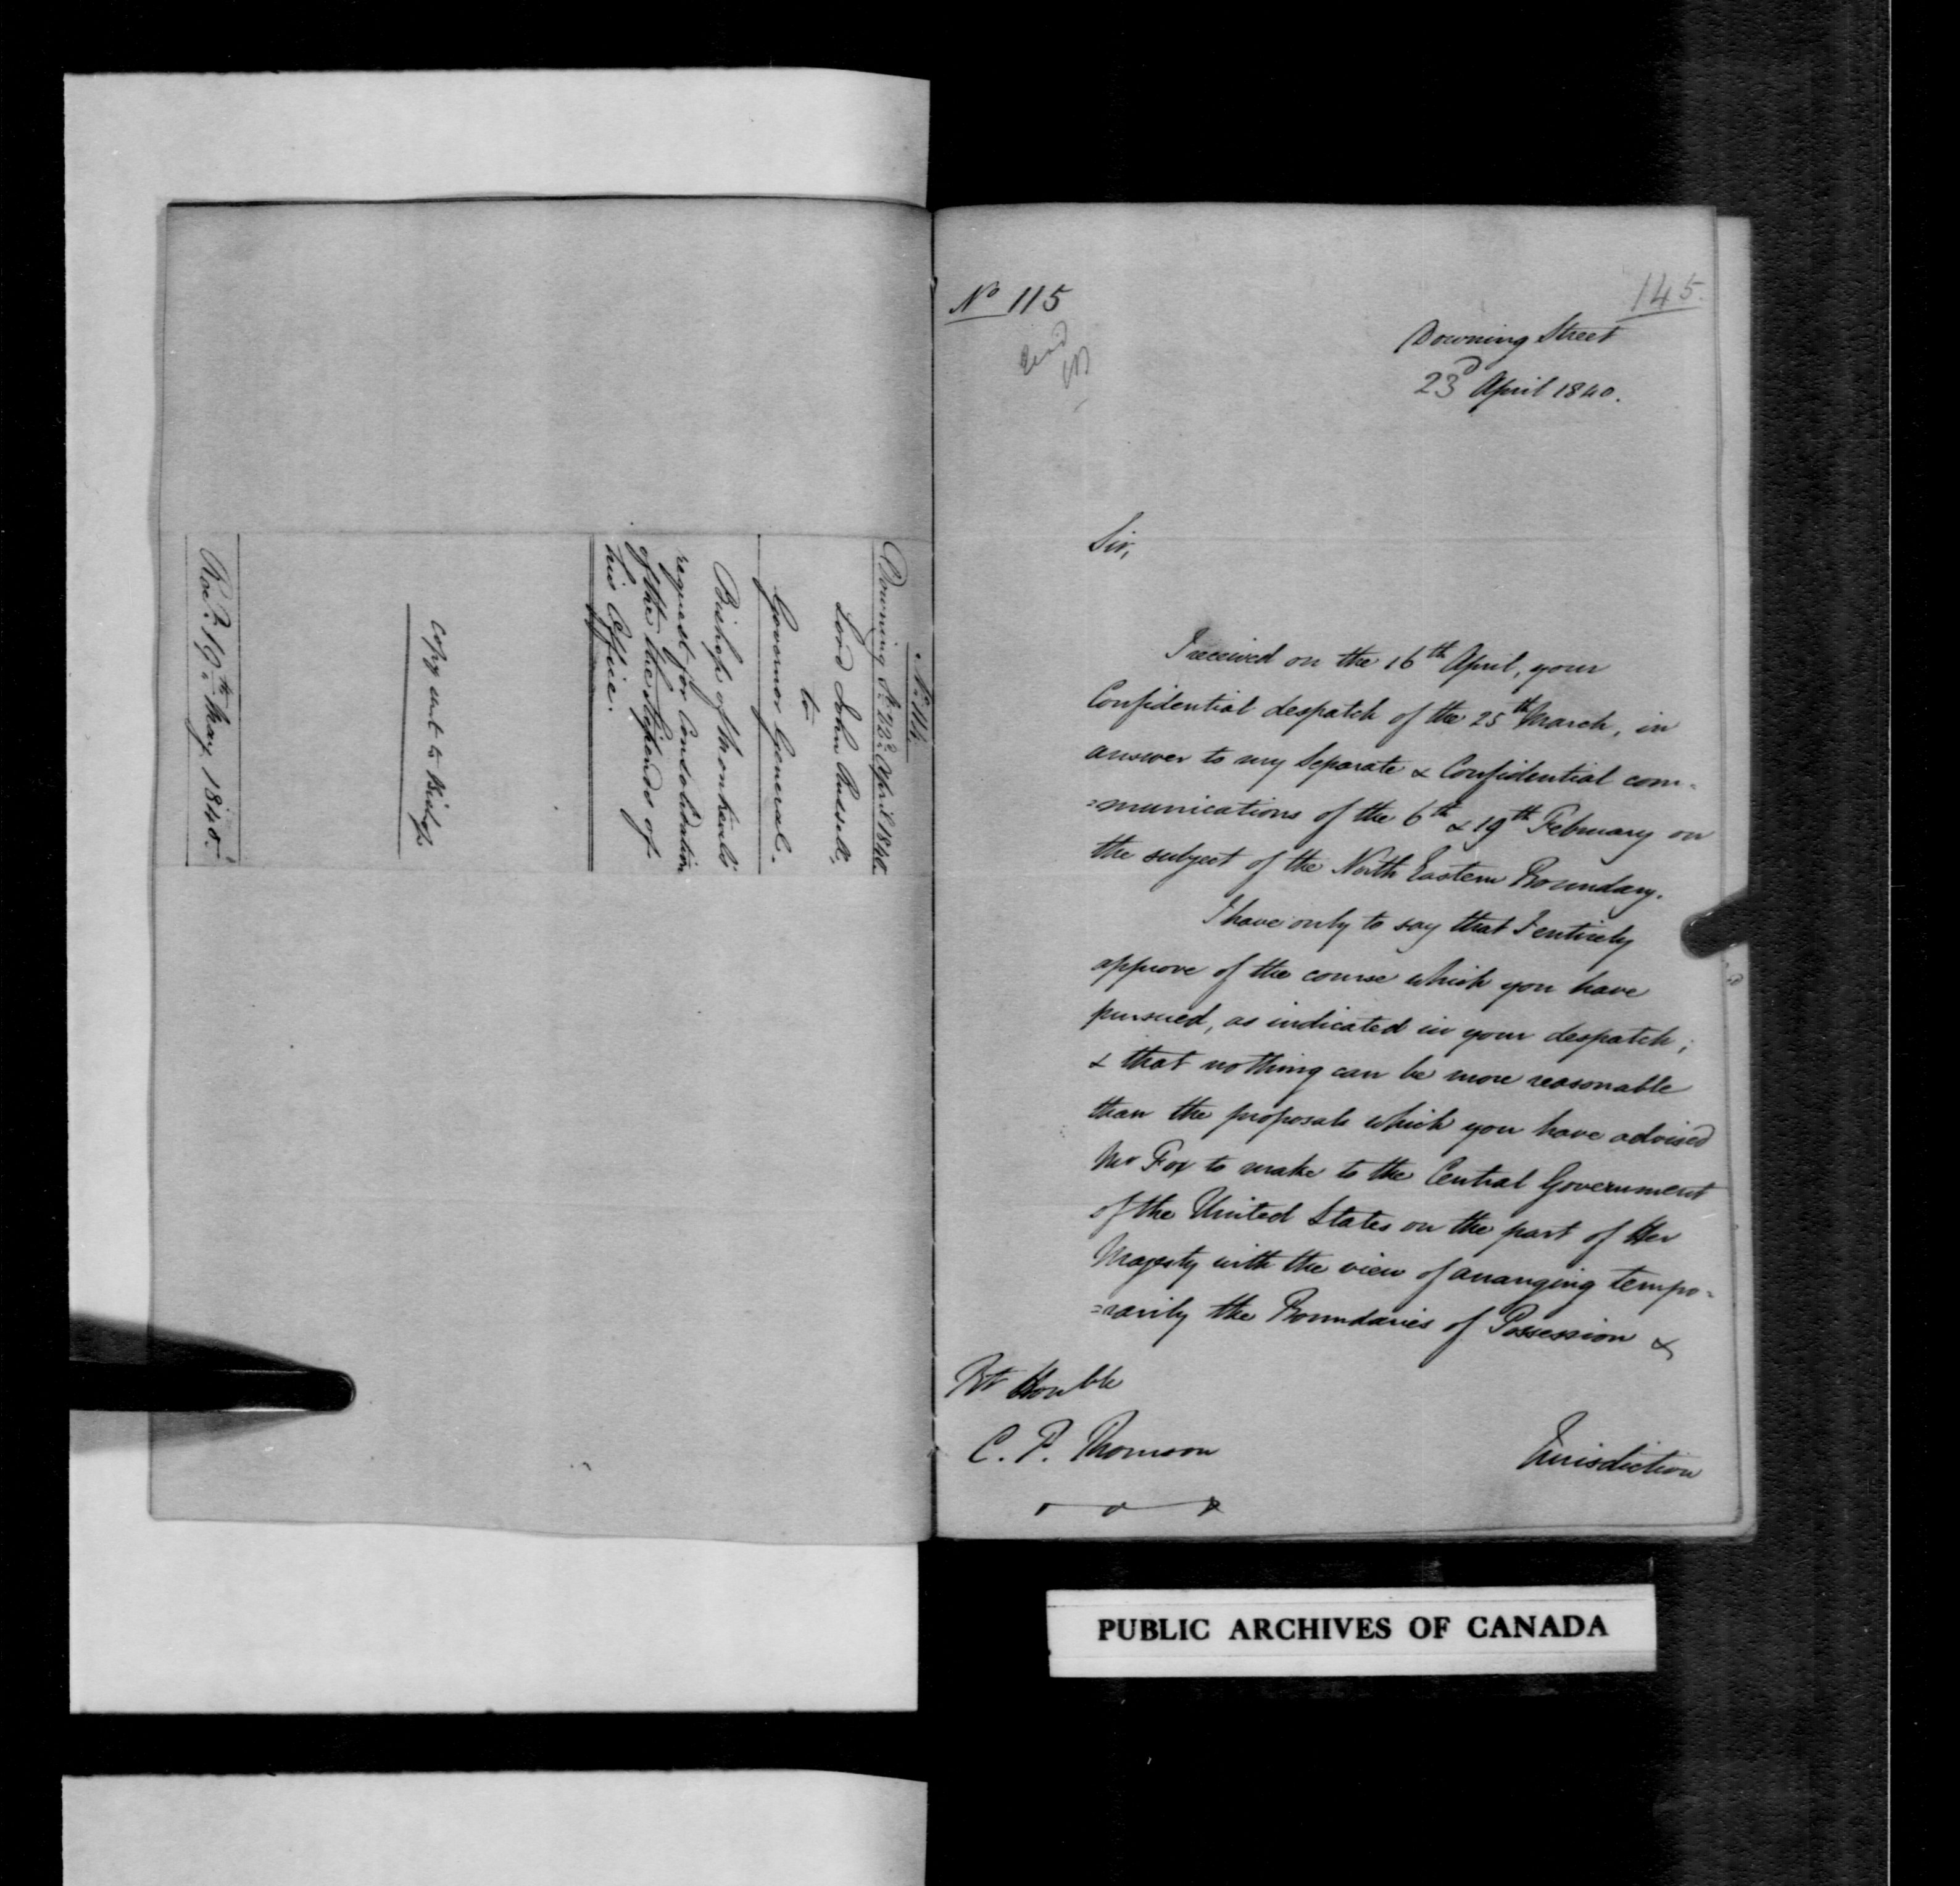 Downing St. 22d April 1840.
Lord John Russell,
to
Governor General.
Bishop of Montreal's
request for Consolidation
of the two Stipends of
his Office.
Copy sent to Bishop
Recd. 19th May 1840.
No 115
145.
Downing Street
23d April 1840.
Sir,
I received on the 16th April, your
Confidential despatch of the 25th March, in
answer to my Separate & Confidential com-
=munications of the 6th & 19th February on
the subject of the North Eastern Boundary.
I have only to say that I entirely
approve of the course which you have
pursued, as indicated in your despatch;
& that nothing can be more reasonable
than the proposals which you have advised
Mr Fox to make to the Central Government
of the United States on the part of Her
Majesty with the view of arranging tempo-
=rarily the Boundaries of Possession &
Rt Honble
C. P. Thomson
Jurisdiction
PUBLIC ARCHIVES OF CANADA